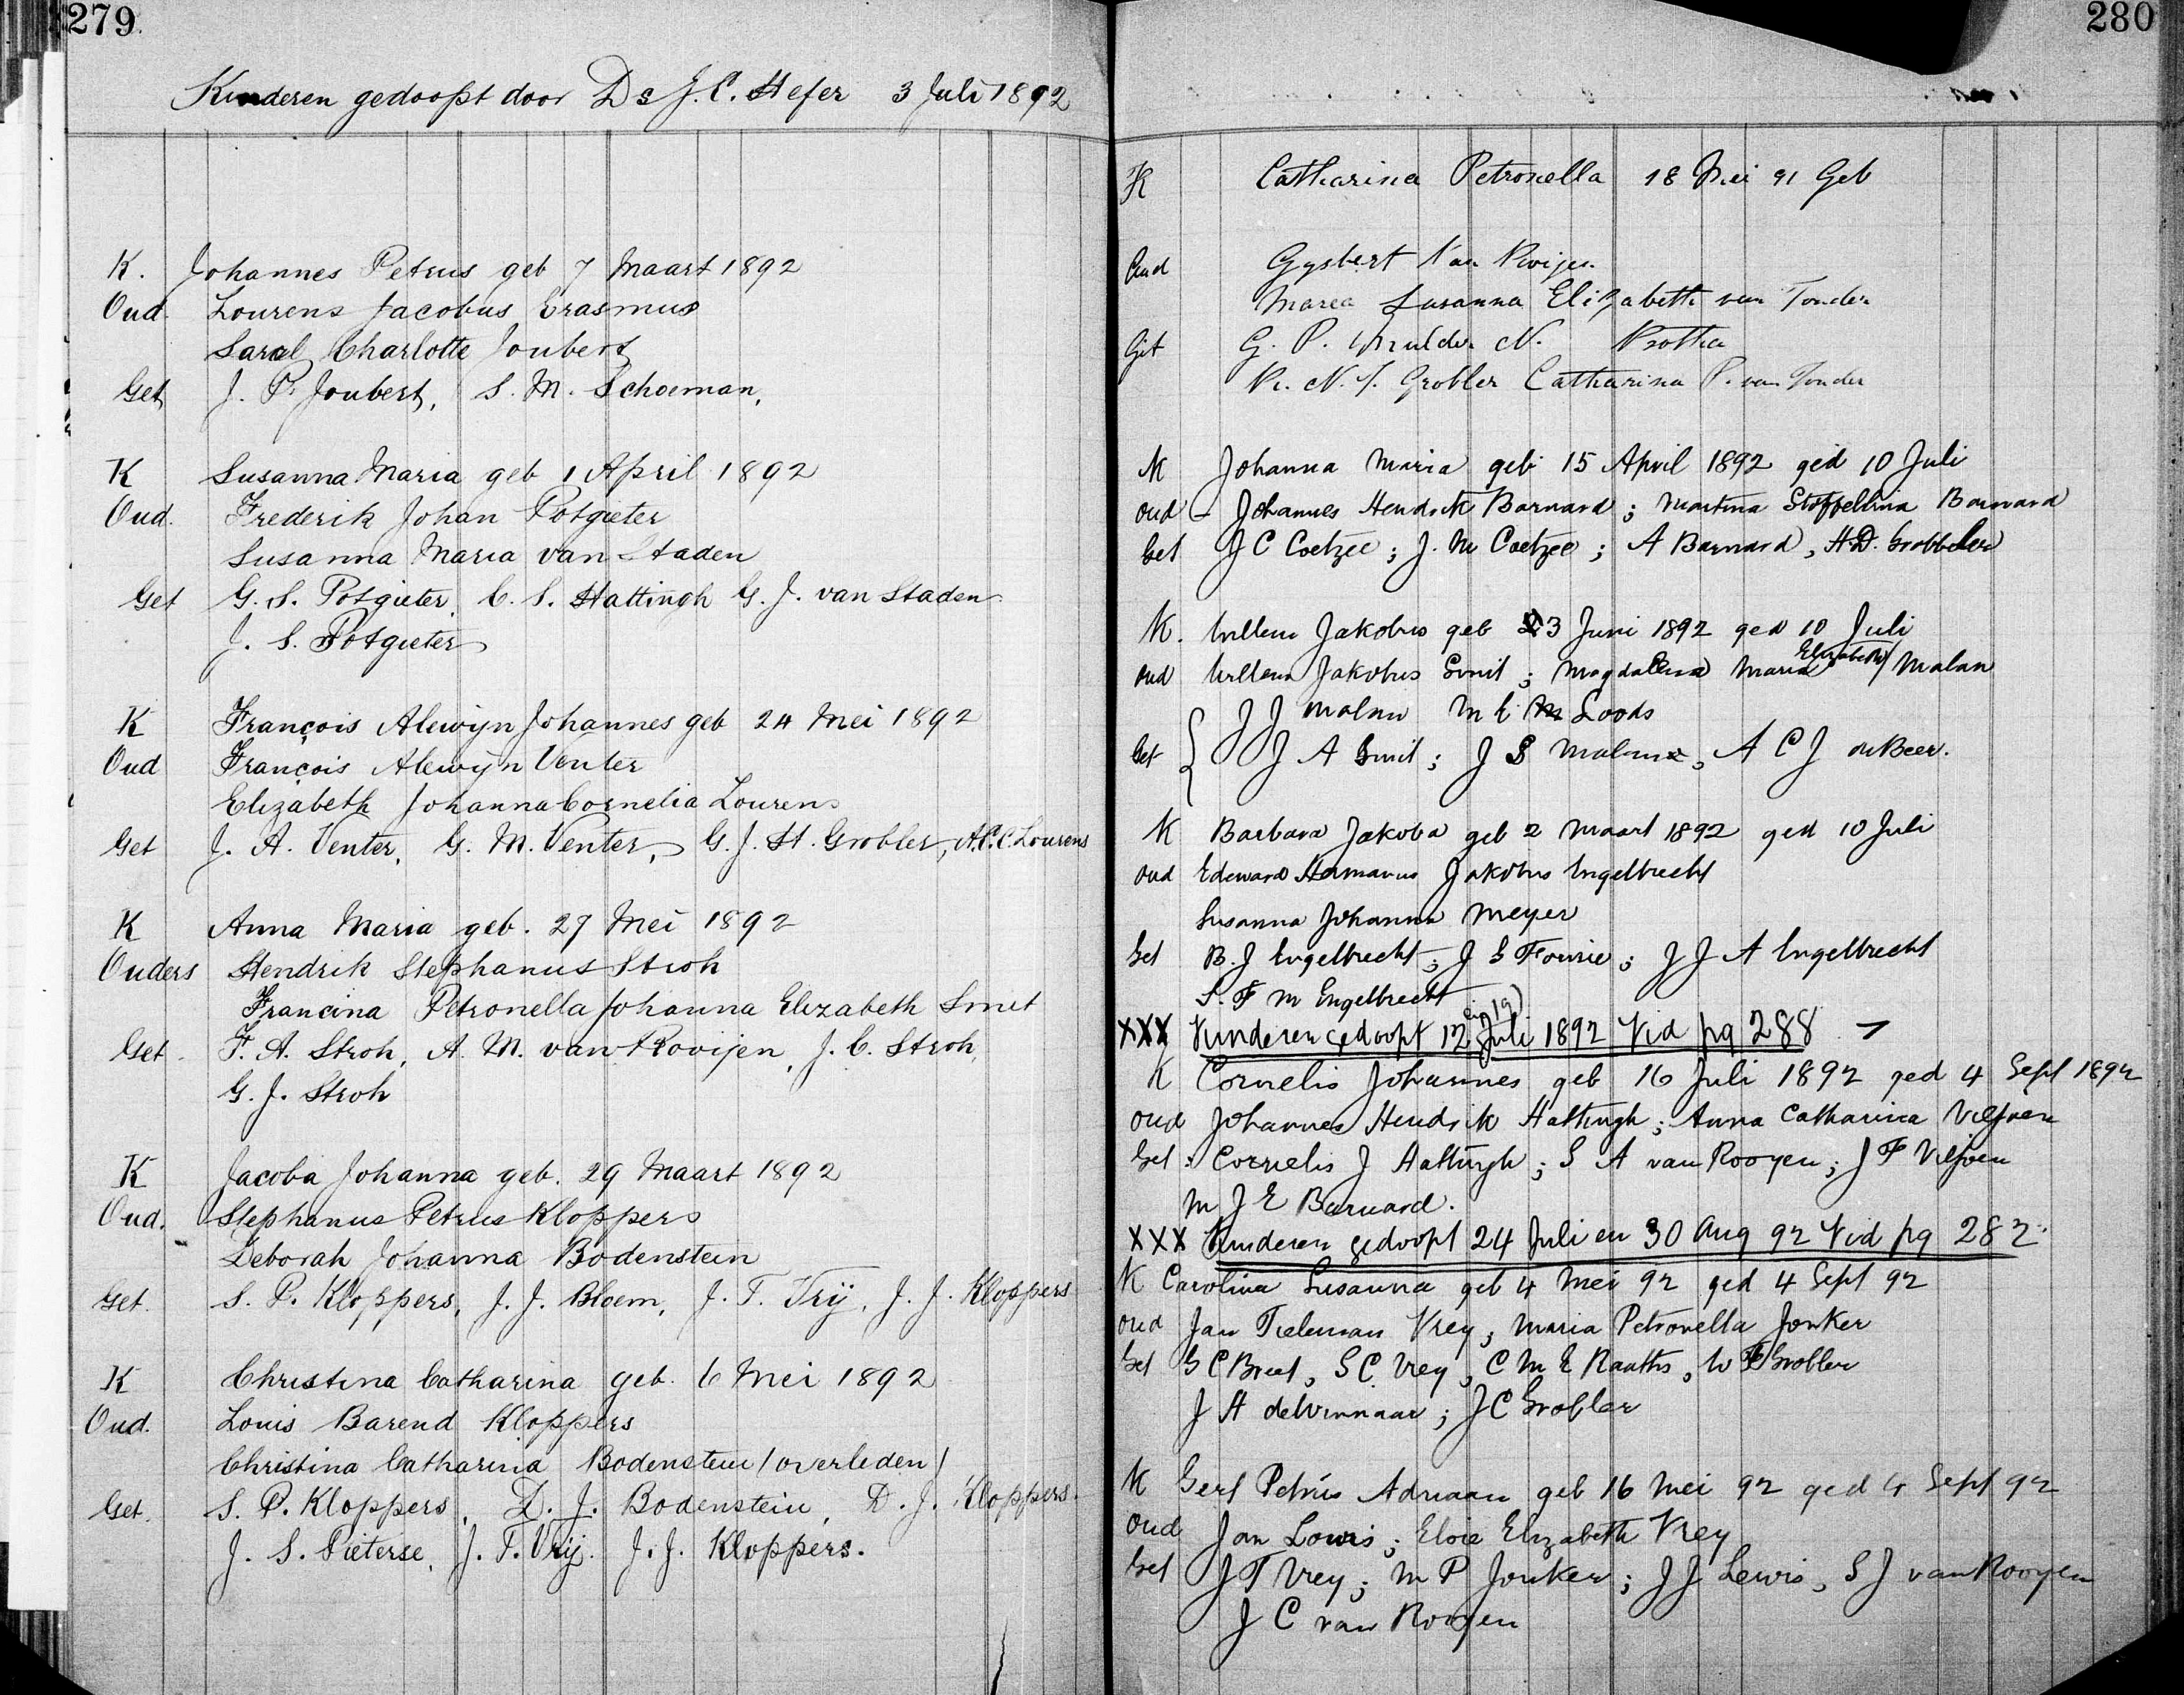 279.
Kinderen gedoopt door Ds J. C. Hefer 3 Juli 1892
K. Johannes Petrus geb 7 Maart 1892
Oud. Lourens Jacobus Erasmus
Sarah Charlotte Joubert
Get J. P. Joubert, S. M. Schoeman,
K Susanna Maria geb 1 April 1892
Oud. Frederik Johan Potgieter
Susanna Maria van Staden
Get G. S. Potgieter, C. S. Hattingh G. J. van Staden
J. S. Potgieter
K François Alewijn Johannes geb 24 Mei 1892
Oud François Alewijn Venter
Elizabeth Johanna Cornelia Lourens
Get J. A. Venter, G. M. Venter, G. J. H. Grobler, A.C.C. Lourens
K Anna Maria geb. 27 Mei 1892
Ouders Hendrik Stephanus Stroh
Francina Petronella Johanna Elizabeth Smit
Get. F. A. Stroh, A. M. van Rooijen, J. C. Stroh,
G. J. Stroh
K Jacoba Johanna geb. 29 Maart 1892
Oud. Stephanus Petrus Kloppers
Deborah Johanna Bodenstein
Get. S. P. Kloppers, J. J. Bloem, J. T. Vrij, J. J. Kloppers
K Christina Catharina geb. 6 Mei 1892
Oud. Louis Barend Kloppers
Christina Catharina Bodenstein (overleden)
Get. S. P. Kloppers, D. J. Bodenstein, D. J. Kloppers.
J. S. Pieterse, J. T. Vrij. J. J. Kloppers.
280
K Catharina Petronella 18 Mei 91 Geb
Oud Gysbert van
Susanna Elizabeth van Tonder
Get G. P. Mulder N. Botha
N. J. Grobler Catharina P. van Tonder
K Johanna Maria geb 15 April 1892 ged 10 Juli
oud Johannes Hendrik Barnard; Martina Stoffellina Barnard
Get J C Coetzee; J. M Coetzee; A Barnard, H.D. Grobbeler
K. Willem Jakobus geb 3 Juni 1892 ged 10 Juli
oud Willem Jakobus Smit; Magdalena Maria Elizabeth Malan
J J Malan M E Loods
Get J A Smit; J S Malan, A C J de Beer.
K Barbara Jakoba geb 2 Maart 1892 ged 10 Juli
oud Edeward Hermanus Jakobus Engelbrecht
Susanna Johanna Meyer
Get B. J Engelbrecht; J S Fourie; J J A Engelbrecht
S. F M Engelbrecht
XXX Kinderen gedoopt 12 Juli 1892 Vid pg 288
K Cornelis Johannes geb 16 Juli 1892 ged 4 Sept 1892
oud Johannes Hendrik Hattingh; Anna Catharina Viljoen
Get: Cornelis J Hattingh; S A van Rooyen; J F Viljoen
M J E Barnard.
XXX Kinderen gedoopt 24 Juli en 30 Aug 92 Vid pg 282.
K Carolina Susanna geb 4 Mei 92 ged 4 Sept 92
oud Jan Tieleman Vrey; Maria Petronella Jonker
Get G C Breet, S C Vrey, C M E Raaths, W F Grobler
J H de Winnaar; J C Grobler
K Gert Petrus Adriaan geb 16 Mei 92 ged 4 Sept 92
oud Jan Lewis; Elsie Elizabeth Vrey
Get J T Vrey; M P Jonker; J J Lewis, S J van Rooyen
J C van Rooyen